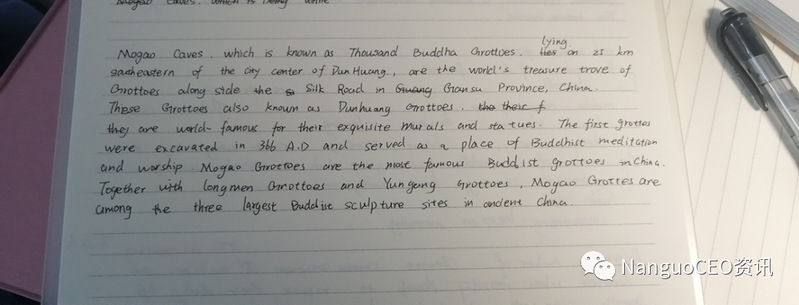 Mogao Caves. which is being
lying
Mogao Caves, which is known as Thousand Buddha Grottoes. lies on 25 km
southeastern of the city center of DunHuang., are the world's treasure trove of
Grottoes along side the Silk Road in Guang Gansu Province, China.
These Grottoes also known as Dunhuang Grottoes. the their f
they are world-famous for their exquisite murals and statues. The first grottes
were excavated in 366 A.D and served as a place of Buddhist meditation
and worship. Mogao Grottoes are the most famous Buddist grottoes in China.
Together with longmen Grottoes and Yungang Grottoes, Mogao Grottes are
among the three largest Buddist sculpture sites in ancient China.
NanguoCEO资讯